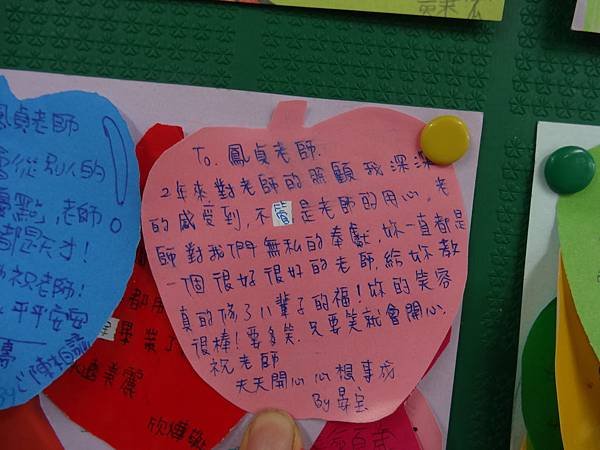 To. 鳳貞老師.
2年來,對老師的照顧我深深
的感受到,不管是老師的用心,老
師對我們無私的奉獻,妳一直都是
一個很好很好的老師,給妳教
真的修了八輩子的福!妳的笑容
很棒!要多笑.只要笑就會開心.
祝老師
天天開心心想事成
By
鳳貞老師
會從別人的
優點,老師
都是天才!
祝老師!
平平安安
畢業了
美麗